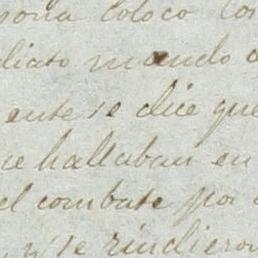 sona coloco con
diato mando a
ente se dice que
se hallaban en
el combate por
y se rindieron